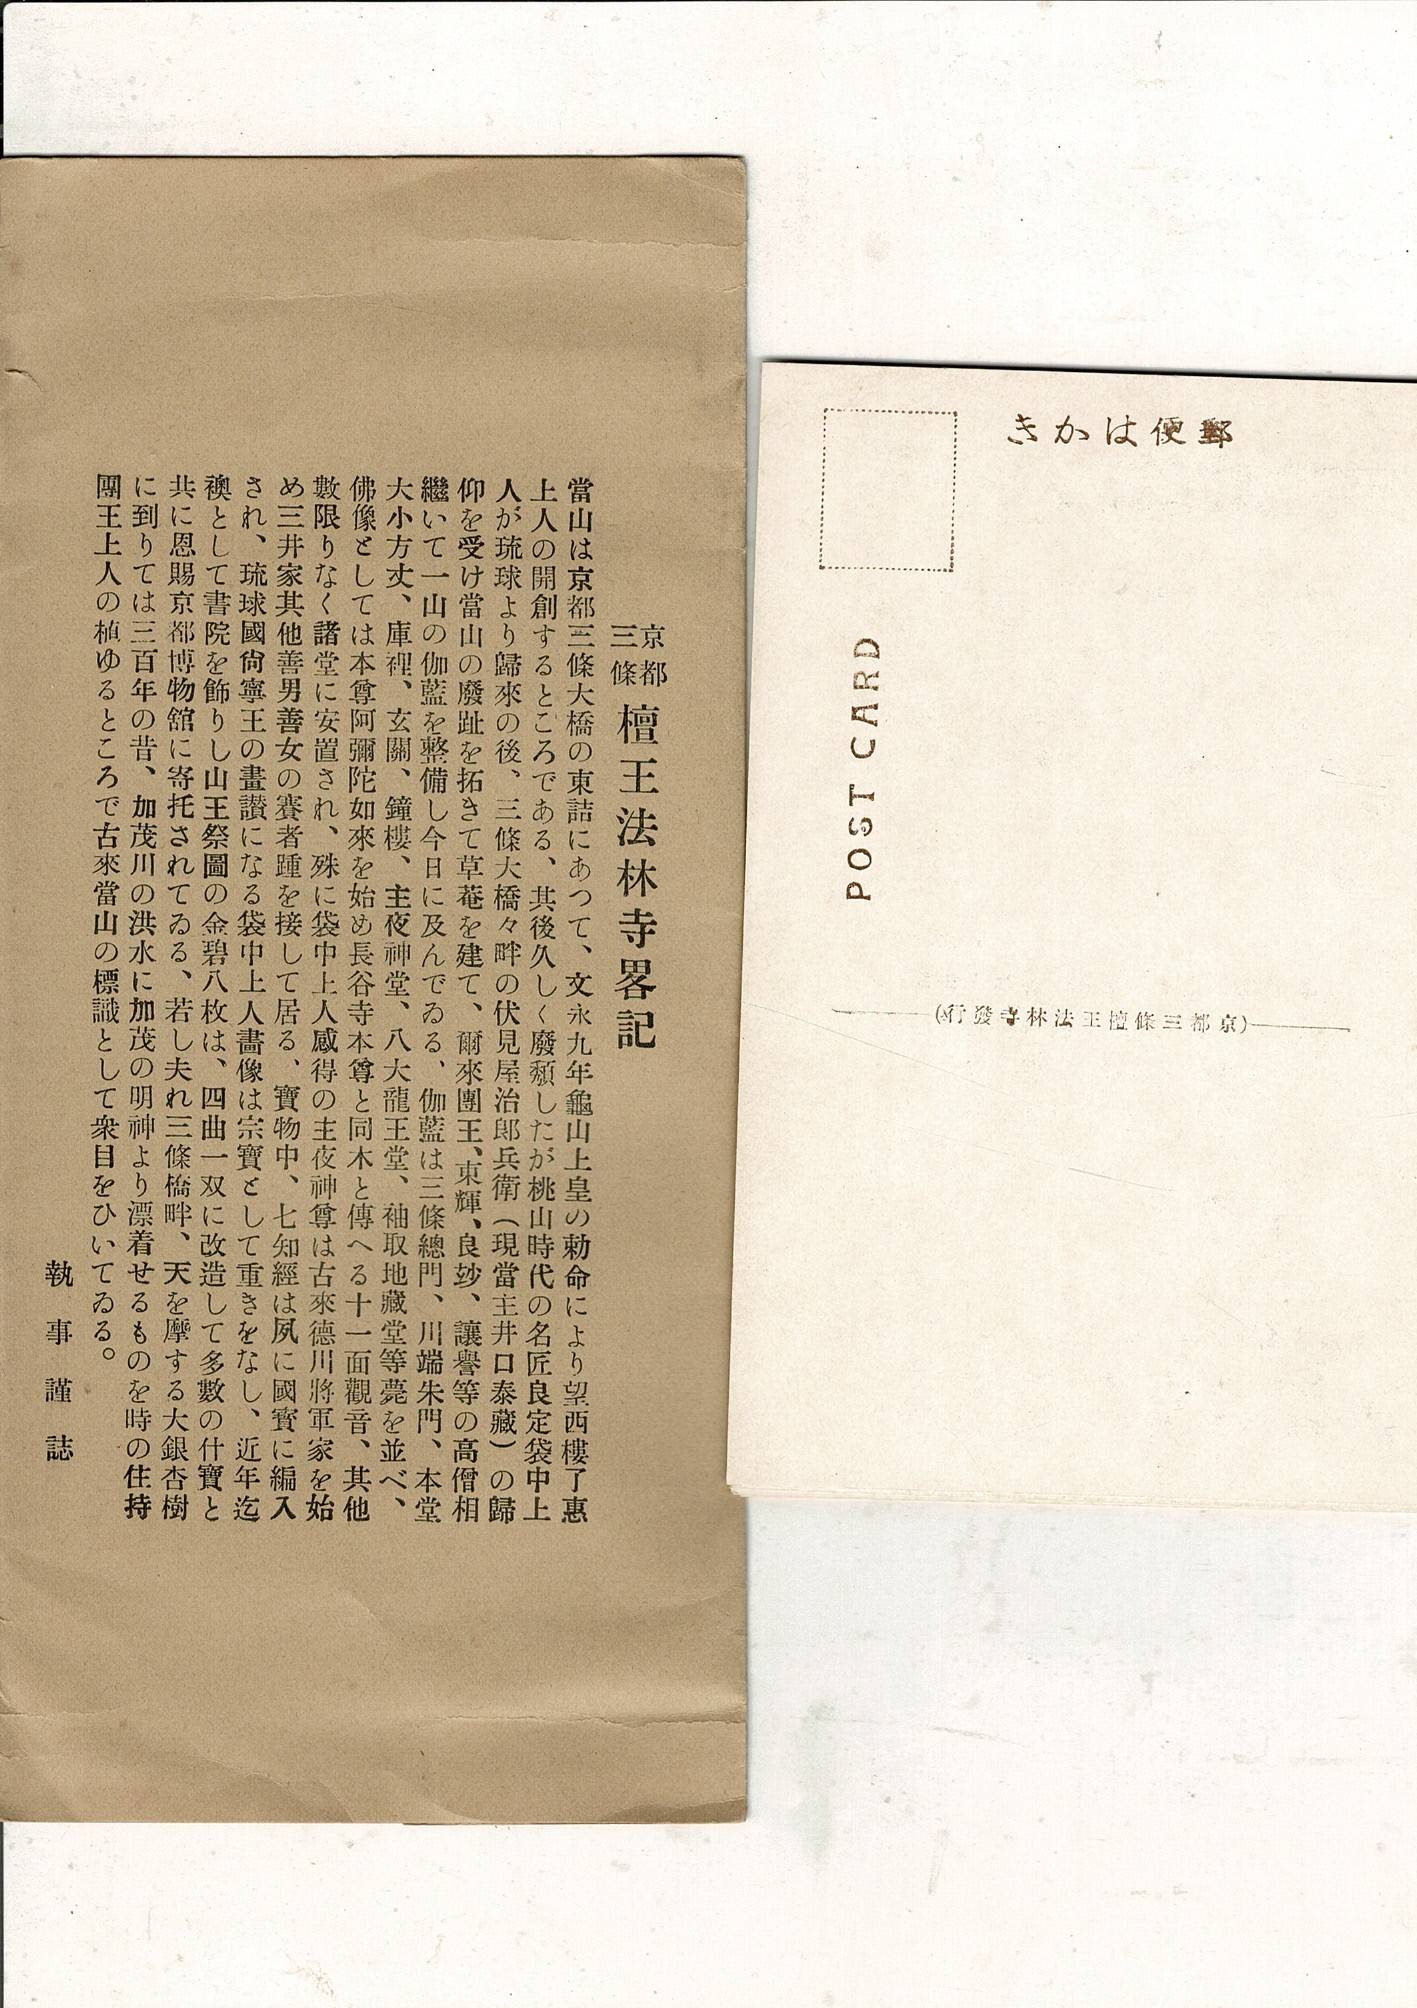 京都
三條
檀王法林寺畧記
當山は京都三條大橋の東詰にあつて、文永九年龜山上皇の勅命により望西樓了惠
上人の開創するところである、其後久しく廢頽したが桃山時代の名匠良定袋中上
人が琉球より歸來の後、三條大橋々畔の伏見屋治郎兵衛(現當主井口泰藏)の歸
仰を受け當山の廢趾を拓きて草菴を建て、爾來團王、東輝、良玅、讓譽等の高僧相
繼いて一山の伽藍を整備し今日に及んでゐる、伽藍は三條總門、川端朱門、本堂
大小方丈、庫裡、玄關、鐘樓、主夜神堂、八大龍王堂、袖取地藏堂等薨を並べ、
佛像としては本尊阿彌陀如來を始め長谷寺本尊と同木と傳へる十一面觀音、其他
數限りなく諸堂に安置され、殊に袋中上人感得の主夜神尊は古來德川將軍家を始
め三井家其他善男善女の賽者踵を接して居る、寶物中、七知經は夙に國寳に編入
され、琉球國尙寧王の畫讃になる袋中上人畫像は宗寶として重きをなし、近年迄
襖として書院を飾りし山王祭圖の金碧八枚は、四曲一双に改造して多數の什寶と
共に恩賜京都博物舘に寄托されてゐる、若し夫れ三條橋畔、天を摩する大銀杏樹
に到りては三百年の昔、加茂川の洪水に加茂の明神より漂着せるものを時の住持
團王上人の植ゆるところで古來當山の標識として衆目をひいてゐる。
執事謹誌
きかは便郵
POST CARD
(行發寺林法王檀條三都京)